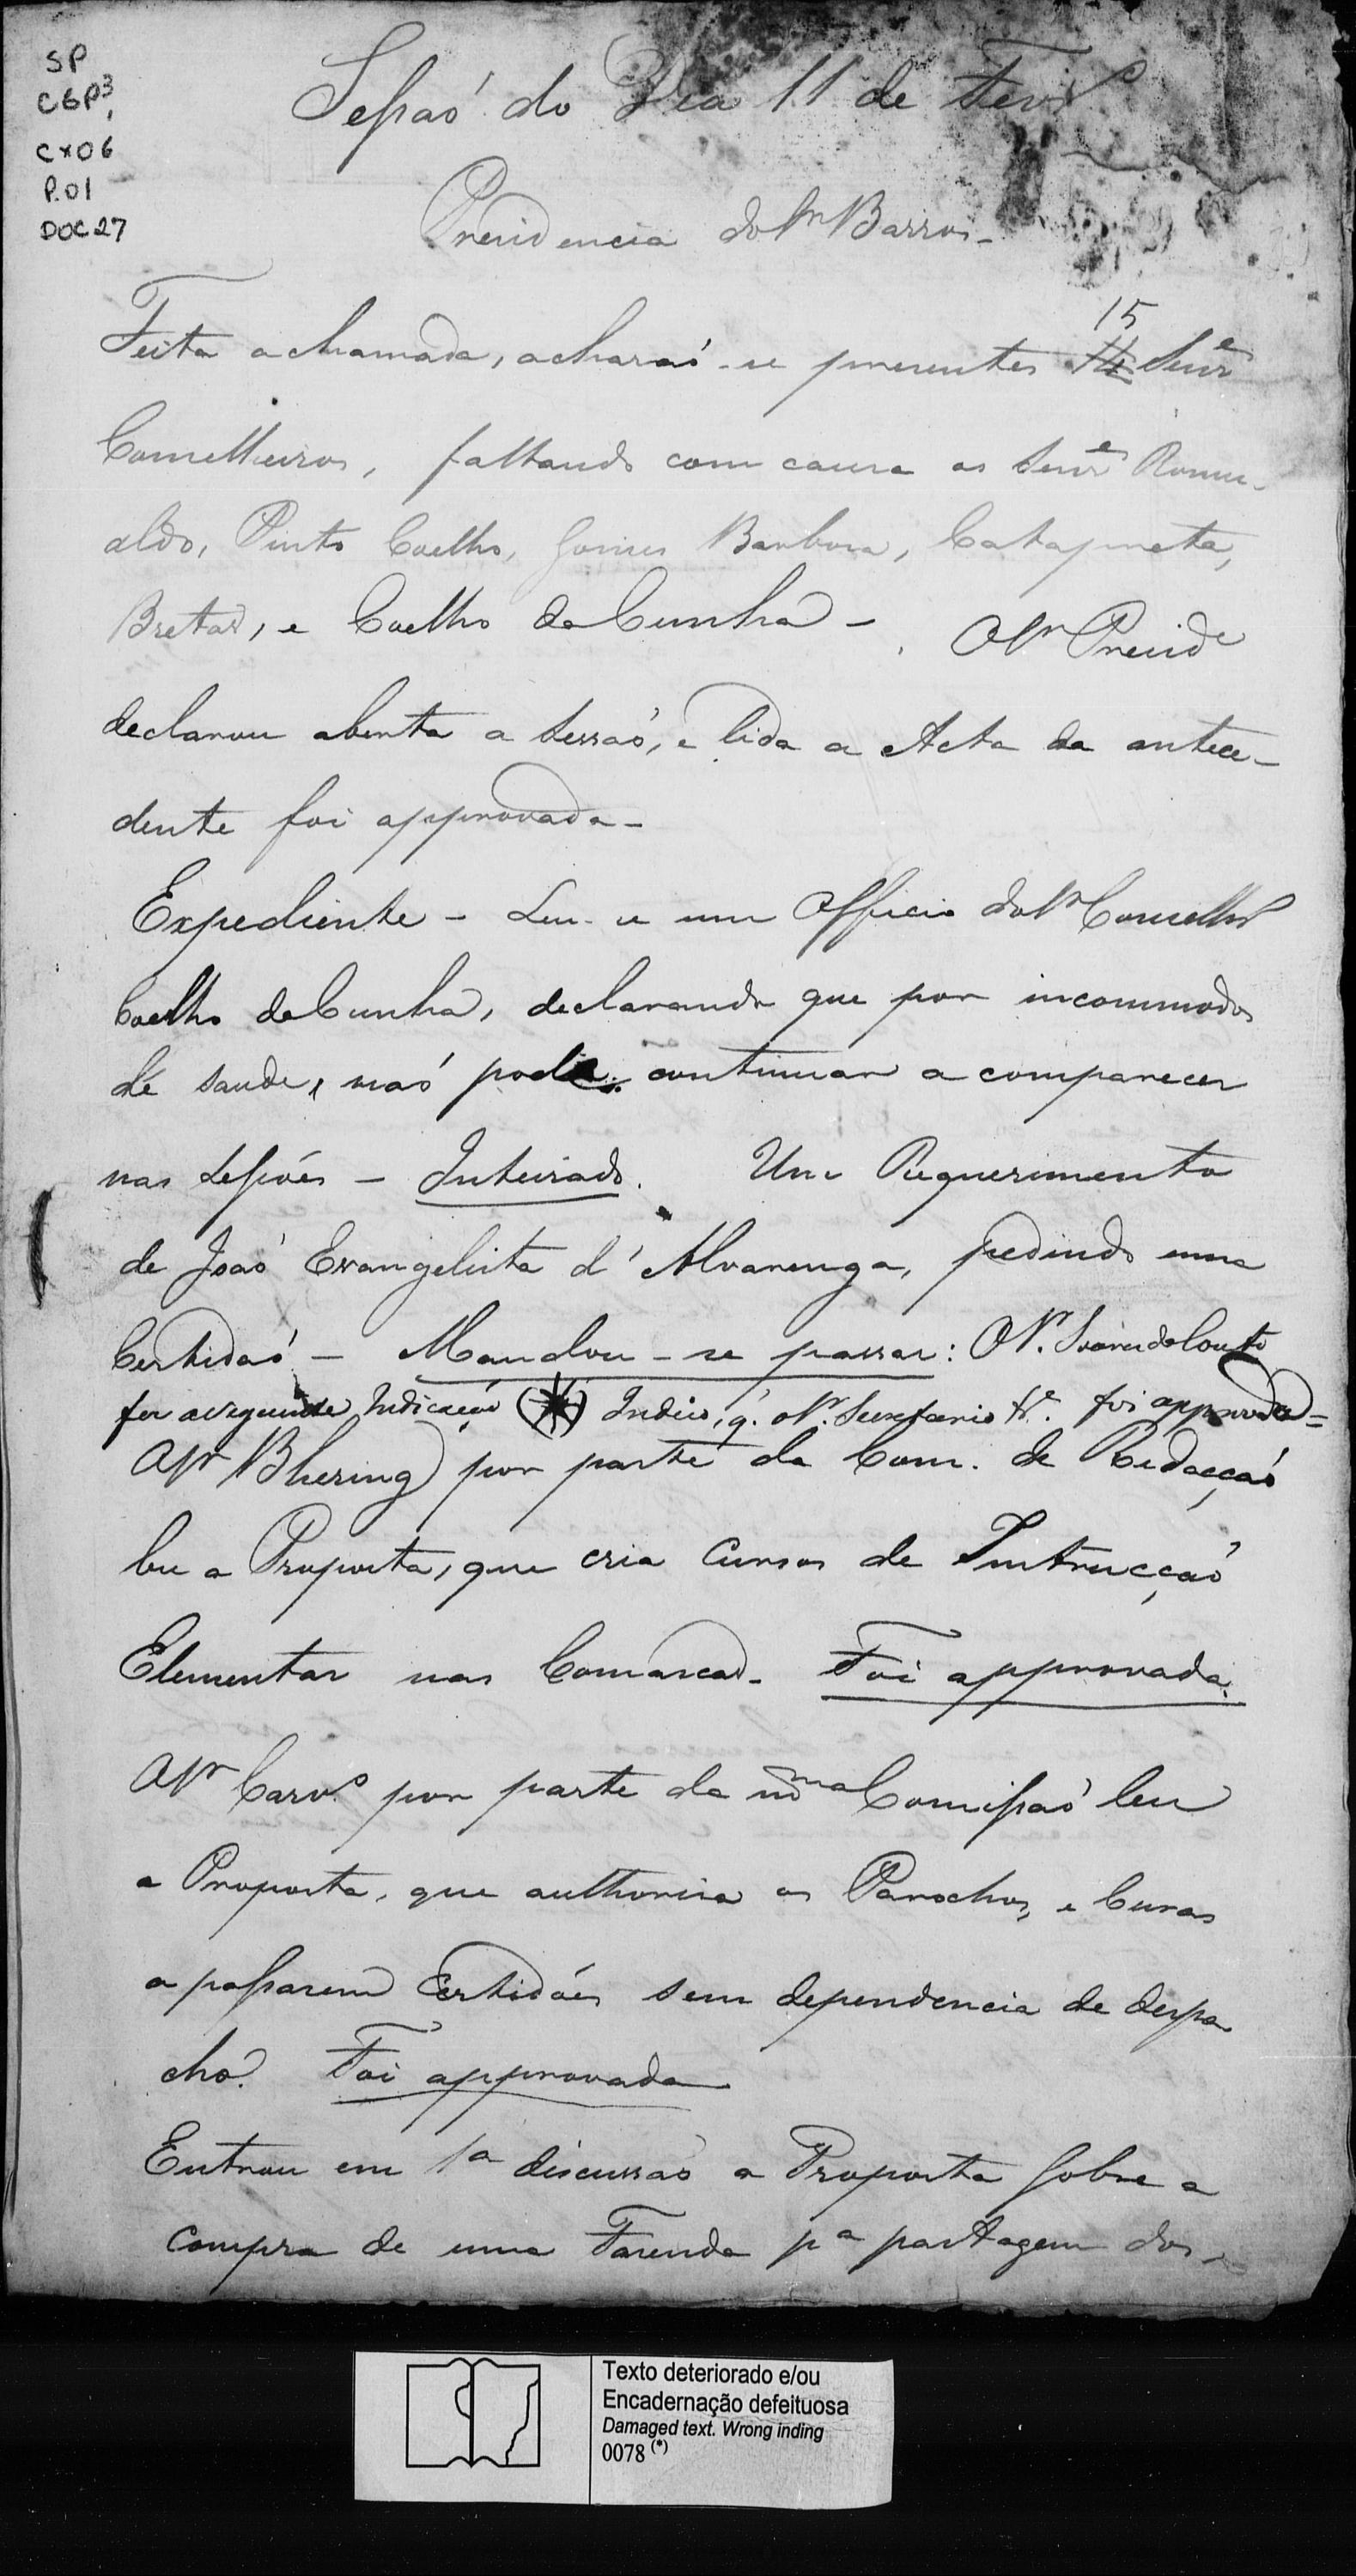 SP
CGP³,
CX06
P.01
DOC 27
Sessaõ do Dia 11 de Fevrº
Presidencia do Sr Barros -
Feita a chamada, acharaõ-se presentes 15 Senres
Conselheiros, faltando com causa os Senres Romu-
aldo, Pinto Coelho, Gomes Barbosa, Catapreta,
Bretas, e Coelho da Cunha - . O Sr Preside
declarou aberta a sessaõ, e lida a Acta da antece-
dente foi approvada -
Expediente - Leu-se um Officio do Sr Conselhro
Coelho da Cunha, declarando que por incommodos
de saude, naõ podia continuar a comparecer
nas Sessoẽs - Inteirado. Um Requerimento
de Joaõ Evangelista d'Alvarenga, pedindo uma
Certidaõ - Mandou-se passar: O Sr. Soares do Couto
fez a seguinte Indicaçaõ (*) Indico, q. o Sr. Secretario &e. foi approvada =
O Sr Bhering por parte da Com. de Redacçaõ
leu a Proposta, que cria Cursos de Instrucçaõ
Elementar nas Comarcas - Foi approvada.
O Sr Carvº por parte da mma Comissaõ leu
a Proposta, que authorisa os Parochos, e Curas
a passarem Certidoẽs sem dependencia de despa
cho. Foi approvada
Entrou em 1ª discussaõ a Proposta sobre a
compra de uma Fazenda pª pastagem dos
Texto deteriorado e/ou
Encadernação defeituosa
Damaged text. Wrong inding
0078 (*)